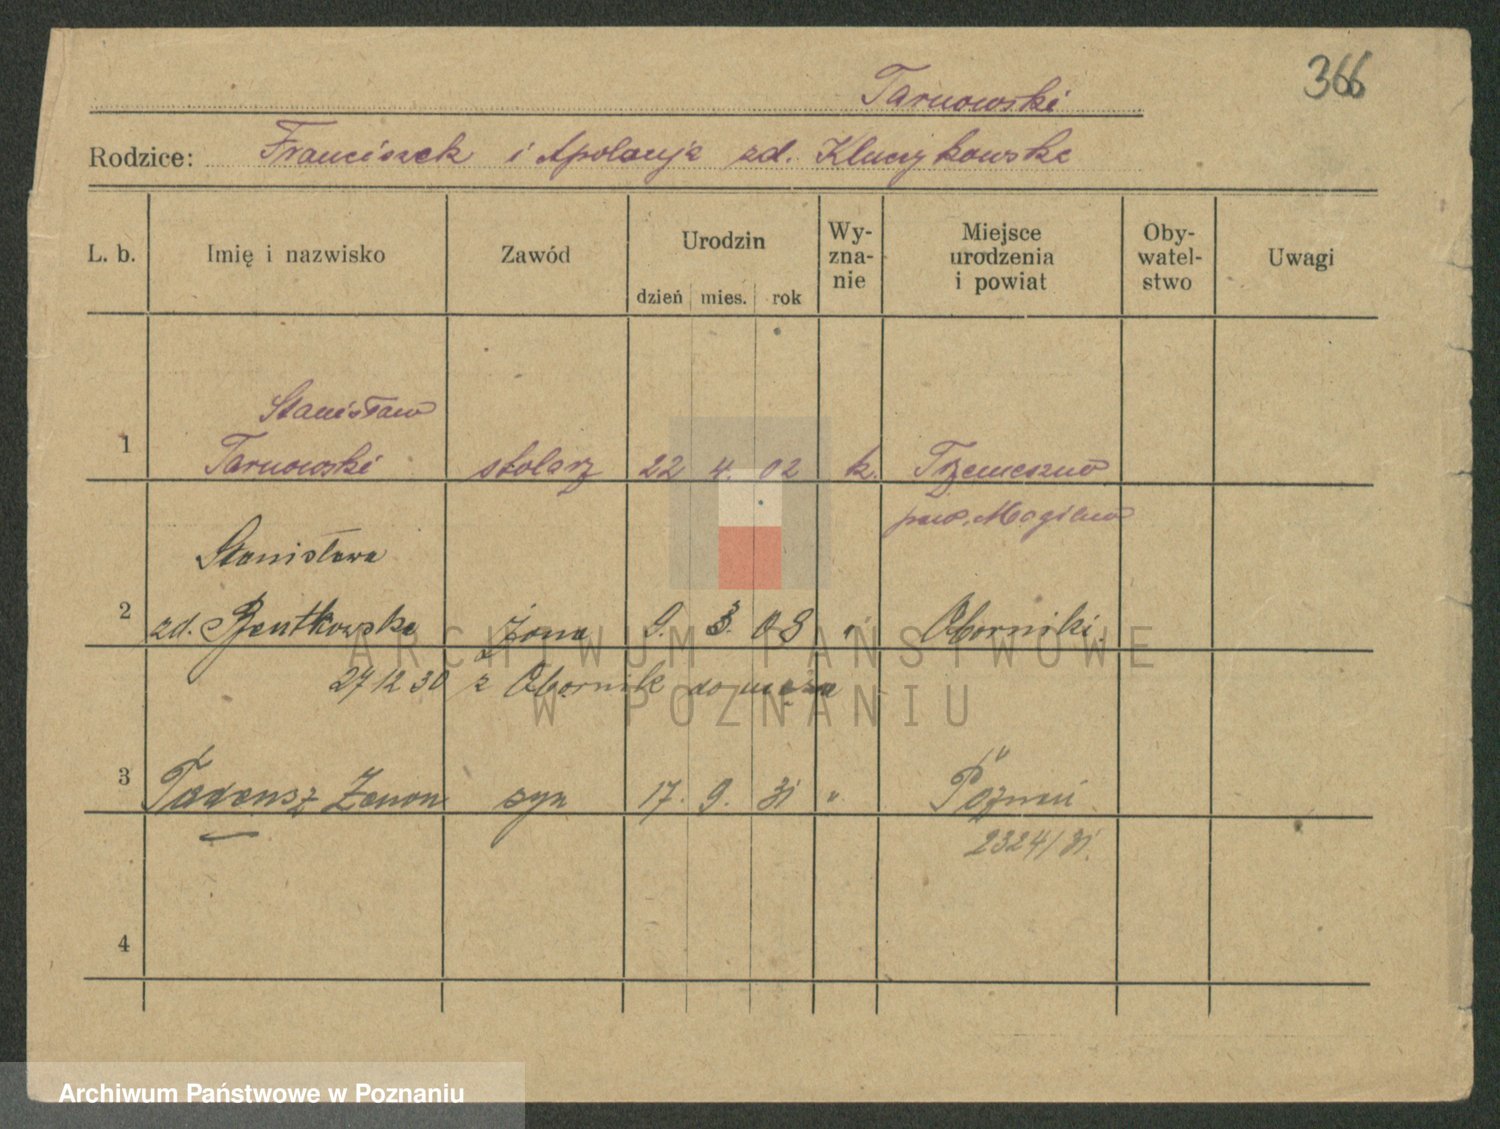 366
Tarnowski
Rodzice: Franciszek i Apolonja zd. Kluczykowska
L. b. Imię i nazwisko Zawód Urodzin dzień mies. rok Wy- zna- nie Miejsce urodzenia i powiat Oby- watel- stwo Uwagi
Stanisław
1 Tarnowski stolarz 22 4. 02 k. Trzemeszno
pow. Mogilno
Stanisława
2 zd. Bentkowska żona 9. 3. 03 " Oborniki.
27 12 30 z Obornik do męża
3 Tadeusz Zenon syn 17. 9. 31 " Poznań
2324/31.
4
ARCHIWUM PAŃSTWOWE
W POZNANIU
Archiwum Państwowe w Poznaniu